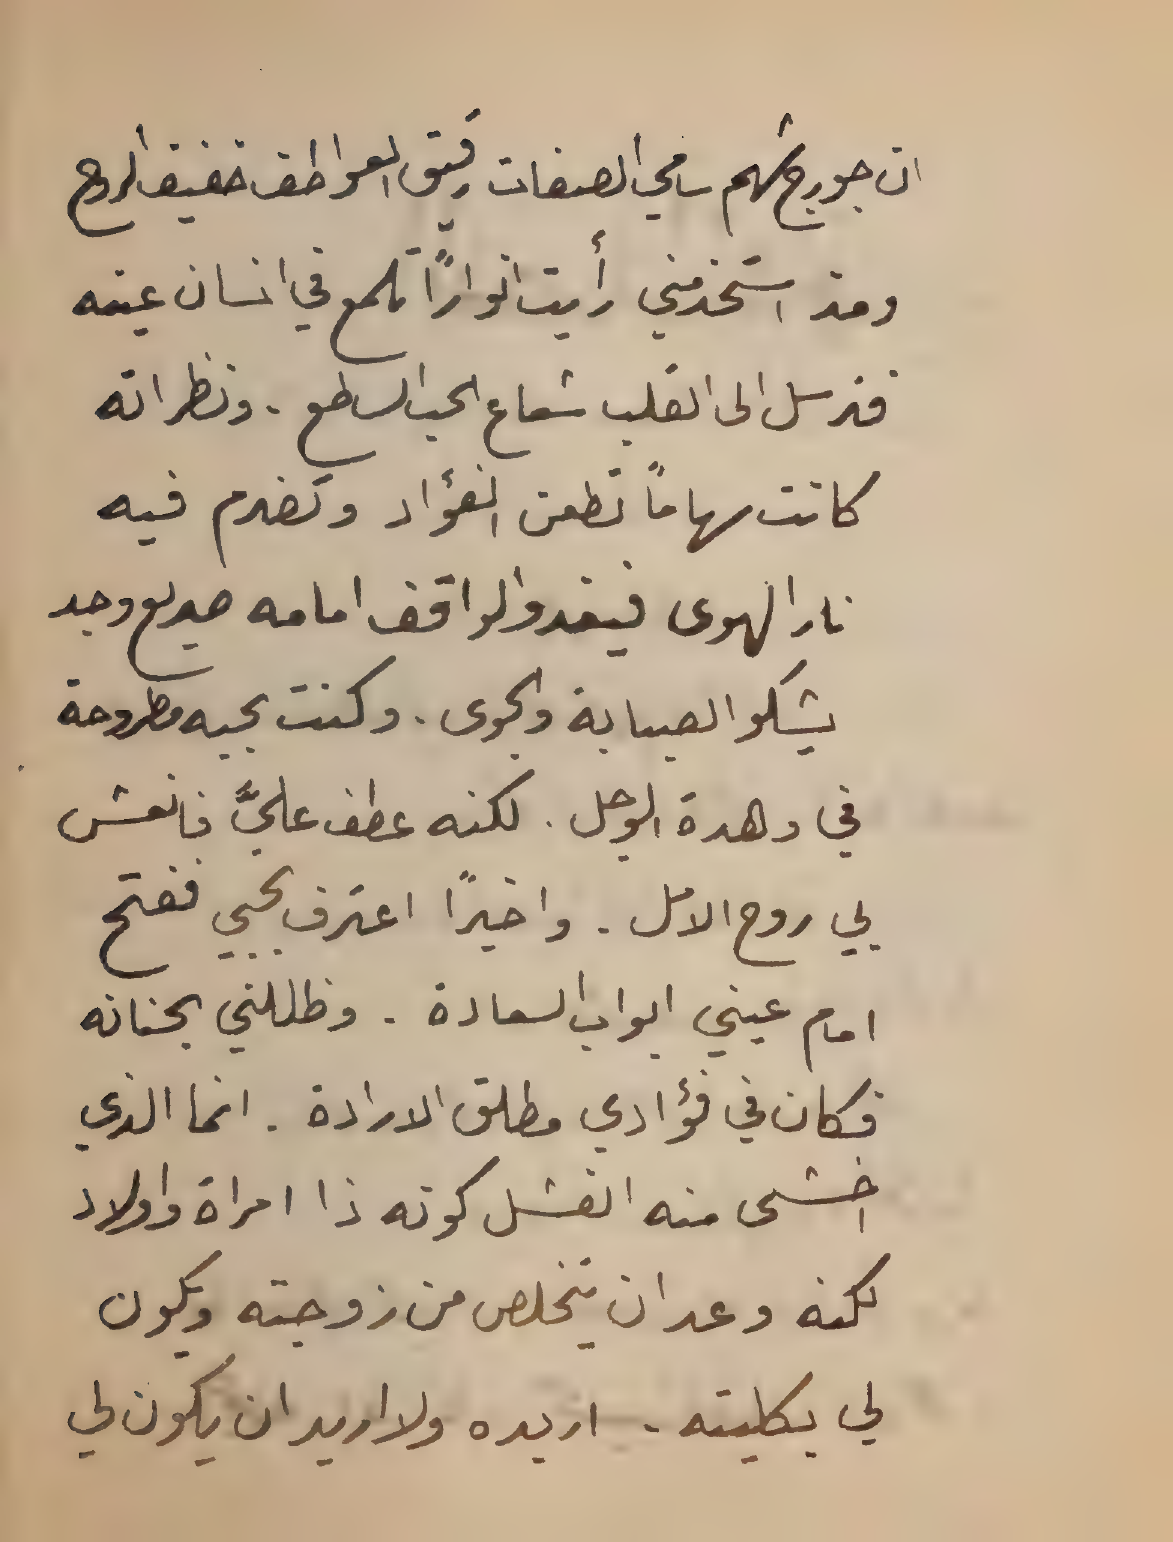 ان جورج شهم سامي الصفات رقيق العواطف خفيف الروح
ومذ استخدمني رأيت انوارًا تلمع في انسان عينه
فترسل الى القلب شعاع الحب الساطع . ونظراته
كانت سهامًا تطعن الفؤاد وتضرم فيه
نار الهوى فيغدو الواقف امامه صريع وجد
يشكو الصبابة والجوى . وكنت بحبه مطروحة
في وهدة الوجل . لكنه عطف عليَّ فانعش
بي روح الامل . واخيرًا اعترف بحبي ففتح
امام عيني ابواب السعادة . وظللني بحنانه
فكان في فؤادي مطلق الارادة . انما الذي
اخشى منه الفشل كونه ذا امراة واولاد
لكنه وعد ان يتخلص من زوجته ويكون
لي بكليته . اريده ولا اريد ان يكون لي